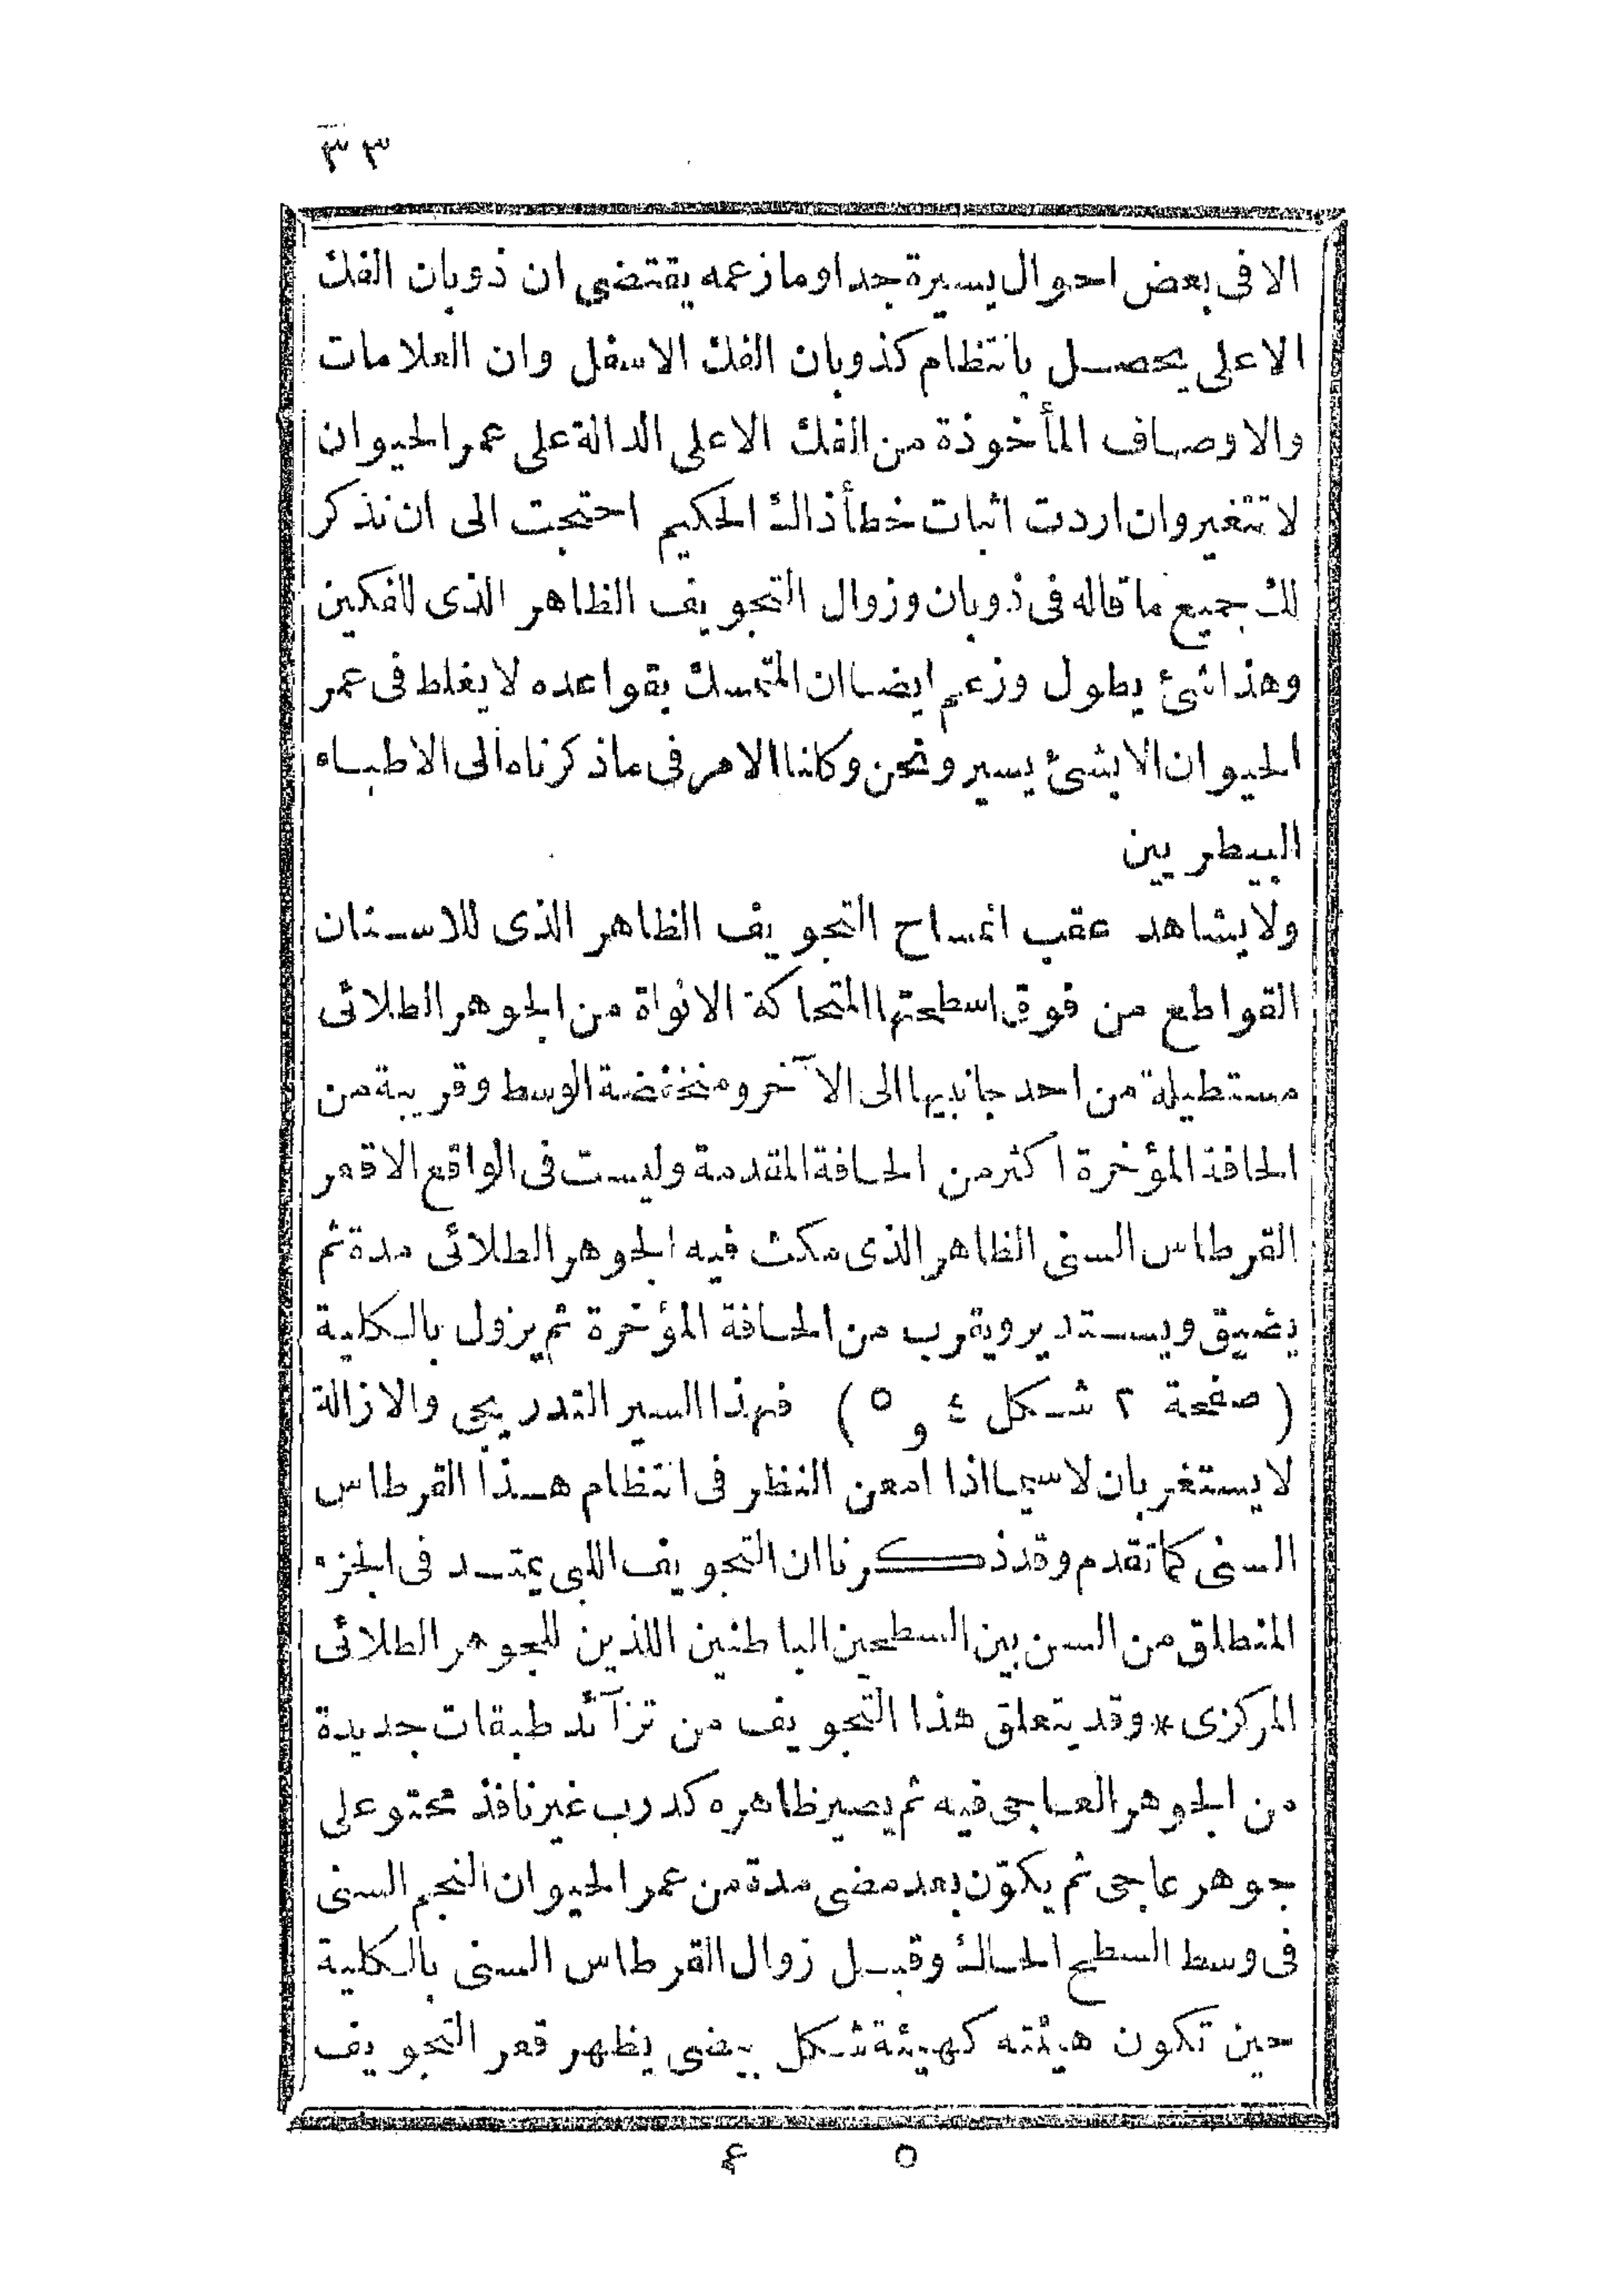 ٣٣
الا فى بعض احوال يسيرة جدا وما زعمه يقتضى ان ذوبان الفك
الاعلى يحصل بانتظام كذوبان الفك الاسفل وان العلامات
والاوصاف المأخوذة من الفك الاعلى الدالة على عمر الحيوان
لا تتغير وان اردت اثبات خطأ ذاك الحكيم احتجت الى ان نذكر
لك جميع ما قاله فى ذوبان وزوال التجويف الظاهر الذى للفكين
وهذا شئ يطول وزعم ايضا ان المتمسك بقواعده لا يغلط فى عمر
الحيوان الا بشئ يسير ونحن وكلنا الامر فى ماذكرناه الى الاطباء
البيطريين
ولا يشاهد عقب انمساح التجويف الظاهر الذى للاسنان
القواطع من فوق اسطحتها المتحاكة الا نواة من الجوهر الطلائى
مستطيلة من احد جانبيها الى الآخر ومنخفضة الوسط وقريبة من
الحافة المؤخرة اكثر من الحافة المقدمة وليست فى الواقع الا قعر
القرطاس السنى الظاهر الذى مكث فيه الجوهر الطلائى مدة ثم
يضيق ويستدير ويقرب من الحافة المؤخرة ثم يزول بالكلية
(صفحة ٢ شكل ٤ و ٥) فهذا السير التدريجى والازالة
لا يستغربان لا سيما اذا امعن النظر فى انتظام هذا القرطاس
السنى كما تقدم وقد ذكرنا ان التجويف اللبى يمتد فى الجزء
المنطلق من السن بين السطحين الباطنين اللذين للجوهر الطلائى
المركزى * وقد يتعلق هذا التجويف من تزآئد طبقات جديدة
من الجوهر العاجى فيه ثم يصير ظاهره كدرب غير نافذ محتو على
جوهر عاجى ثم يكوّن بعد مضى مدة من عمر الحيوان النجم السنى
فى وسط السطح الحاك وقبل زوال القرطاس السنى بالكلية
حين تكون هيئته كهيئة شكل بيضى يظهر قعر التجويف
٥ ع